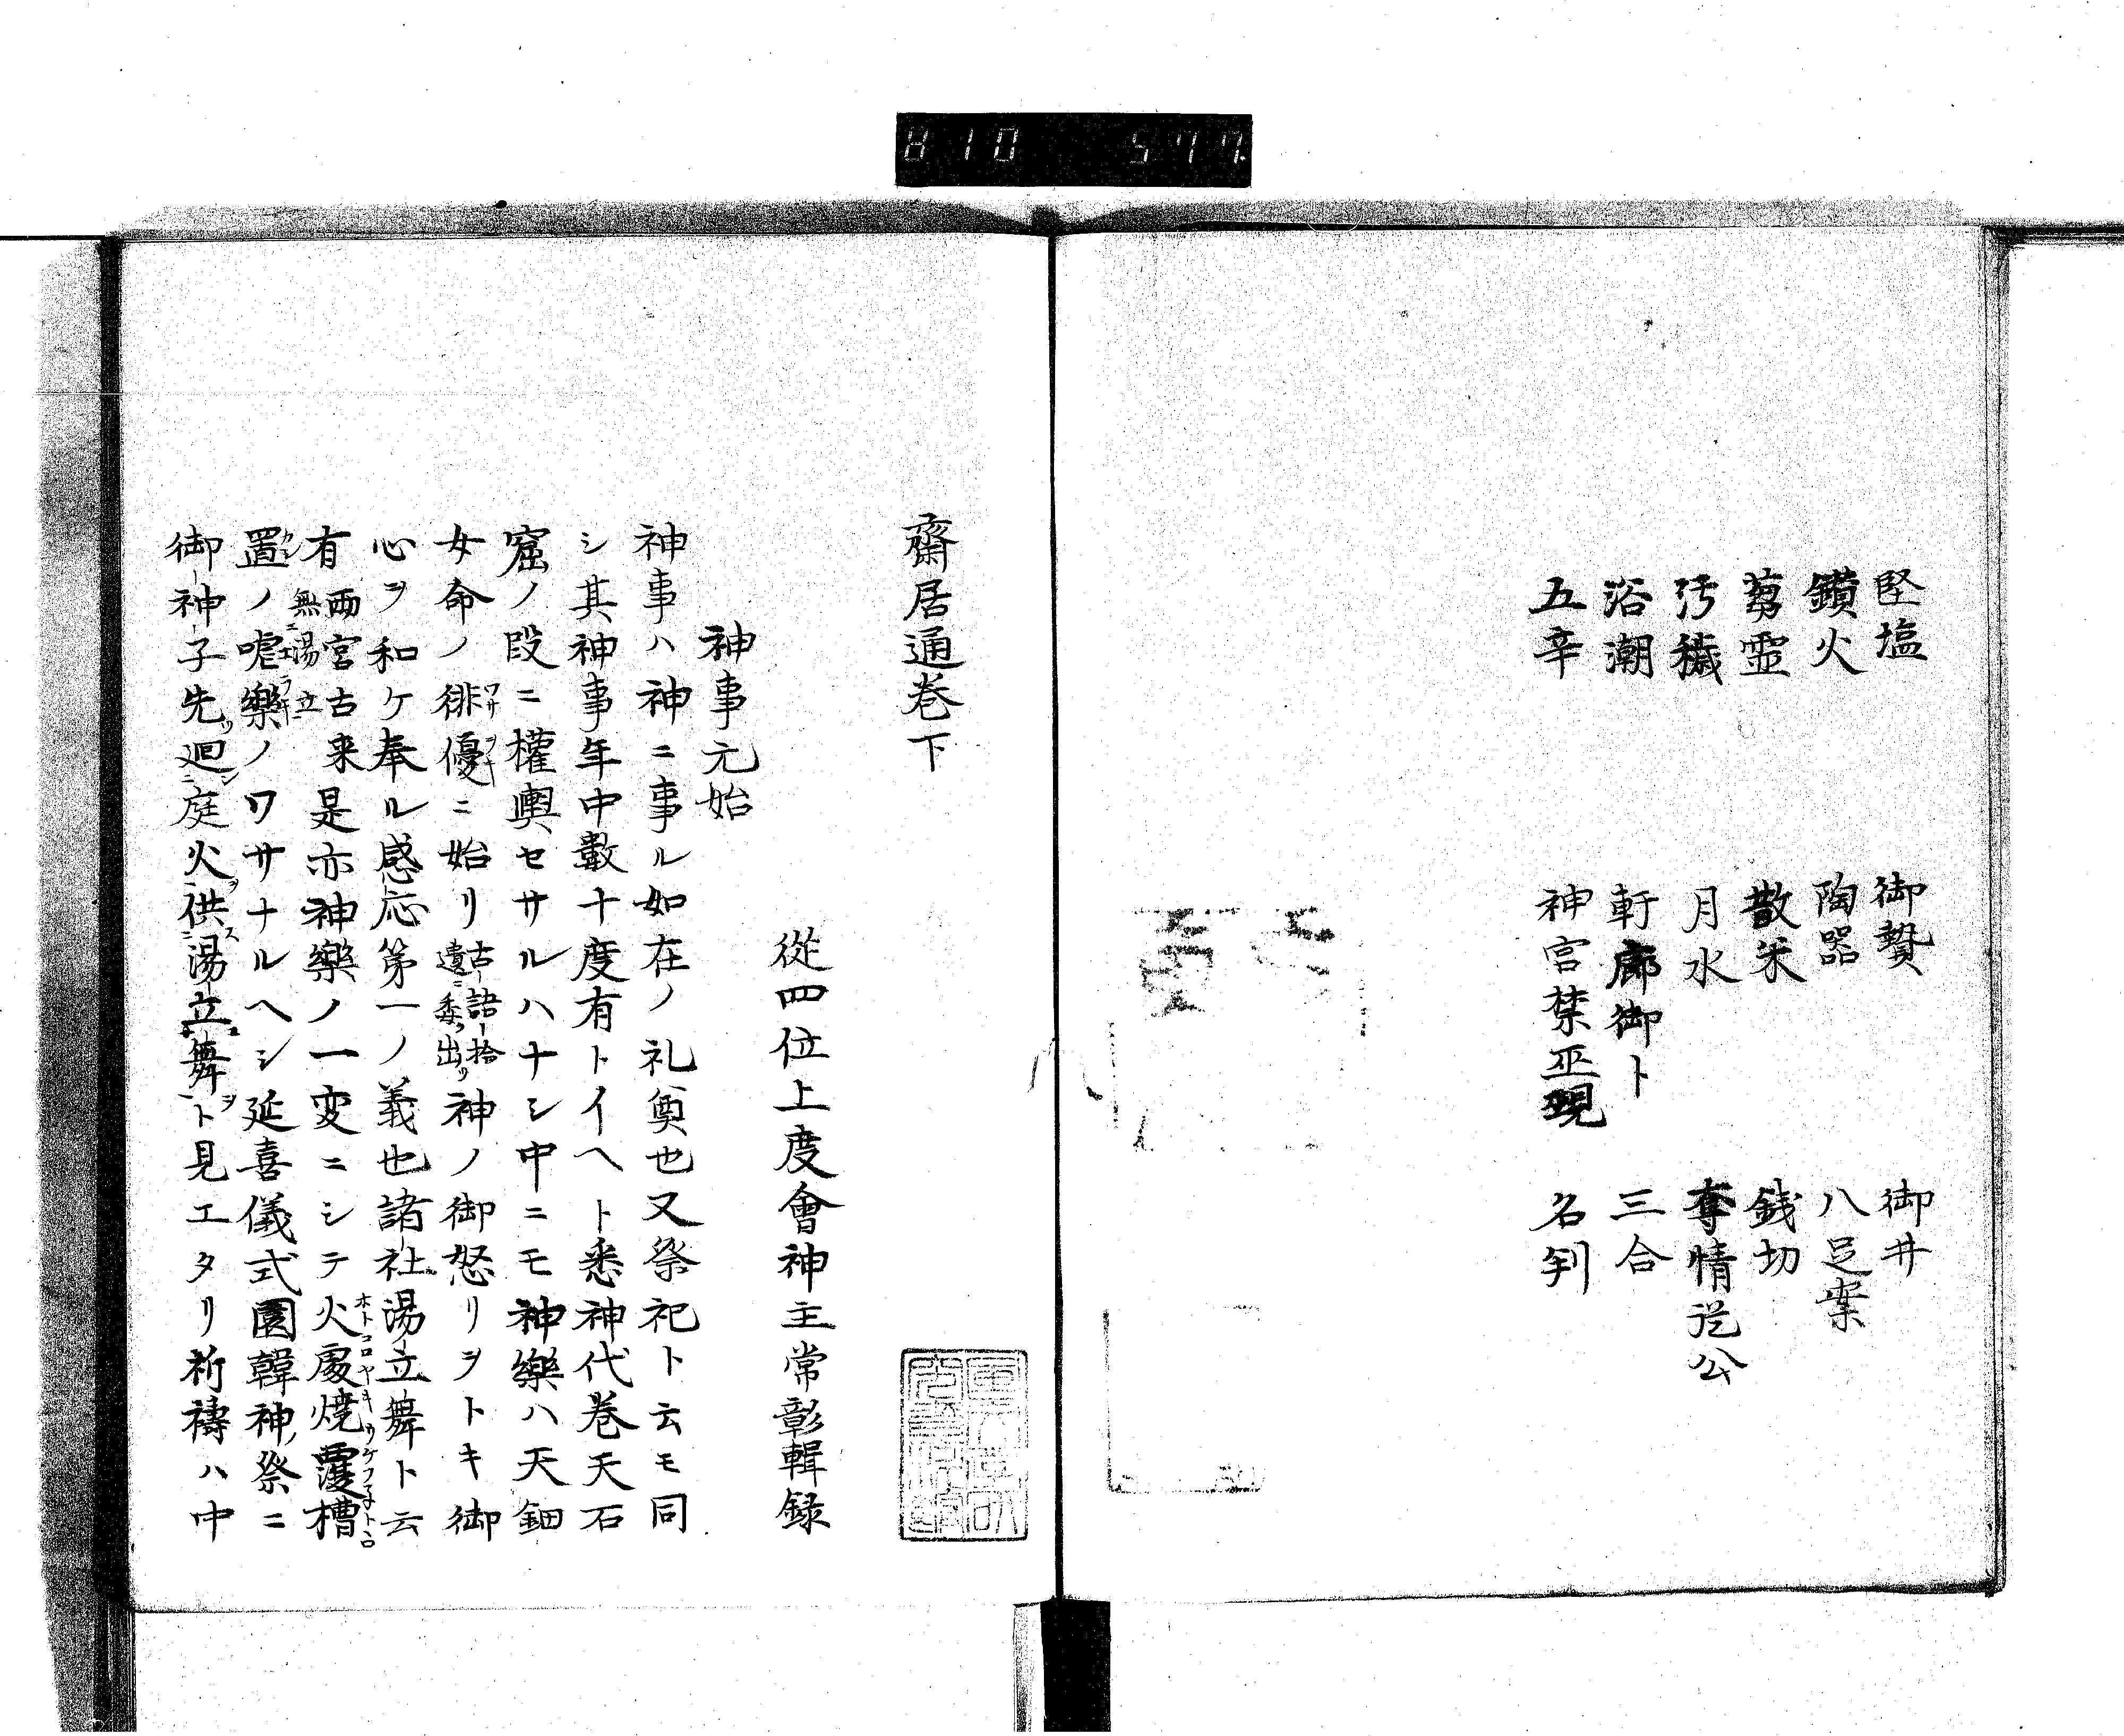 堅塩　御贄　御井
鑽火　陶器　八足案
蒭霊　散米　銭切
汚穢　月水　奪情従公
浴潮　軒廊御卜　三合
五辛　神宮禁巫覡　名判
齋居通巻下
従四位上度會神主常彰輯録
神事元始
神事ハ神ニ事ル如在ノ礼奠也又祭祀ト云モ同
シ其神事年中數十度有トイヘト悉神代巻天石
窟ノ段ニ權輿セサルハナシ中ニモ神樂ハ天鈿
女命ノ徘優ワサヲキニ始リ古語拾遺ニ委ク出リ神ノ御怒リヲトキ御
心ヲ和ケ奉ル感応第一ノ義也諸社湯立舞ト云
有両宮古来無湯立是亦神樂ノ一変ニシテ火處焼覆槽
置ノ嘘樂ノワサナルヘシ延喜儀式園韓神祭ニ
御神子先廻庭火供湯立舞ト見エタリ祈禱ハ中
810 577